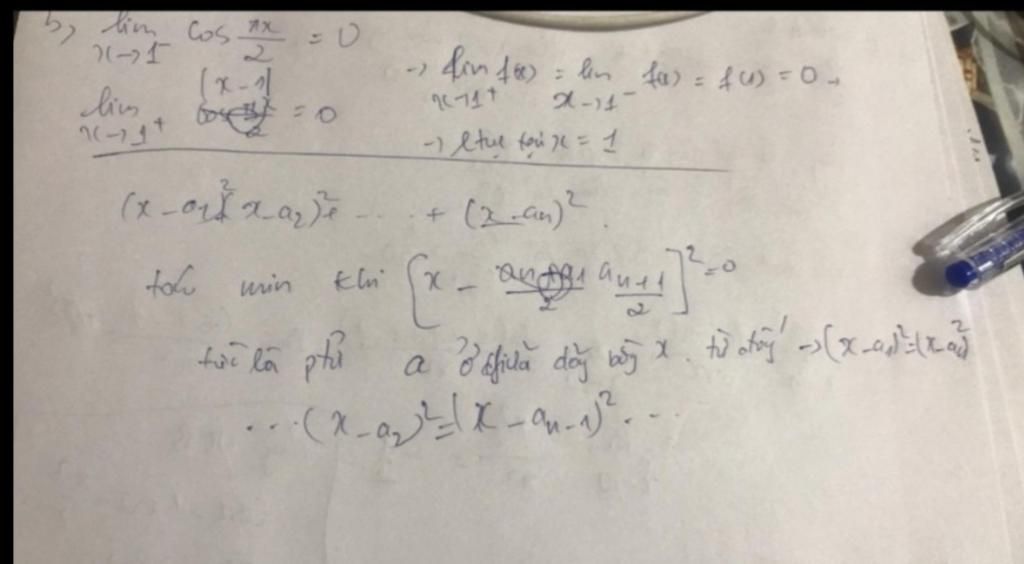 b) lim x→1⁻ cos πx/2 = 0
lim x→1⁺ |x-1| = 0
→ lim x→1⁺ f(x) = lim x→1⁻ f(x) = f(1) = 0 →
→ ltục tại x = 1
(x-a₁)²(x-a₂)²+ .... + (x-aₙ)².
min khi [x - a (n+1)/2]² = 0
tức là phử a ở giữa dãy bằng x. từ đây → (x-a₁)² = (x-aₙ)²
...(x-a₂)² = (x-aₙ₋₁)² ...